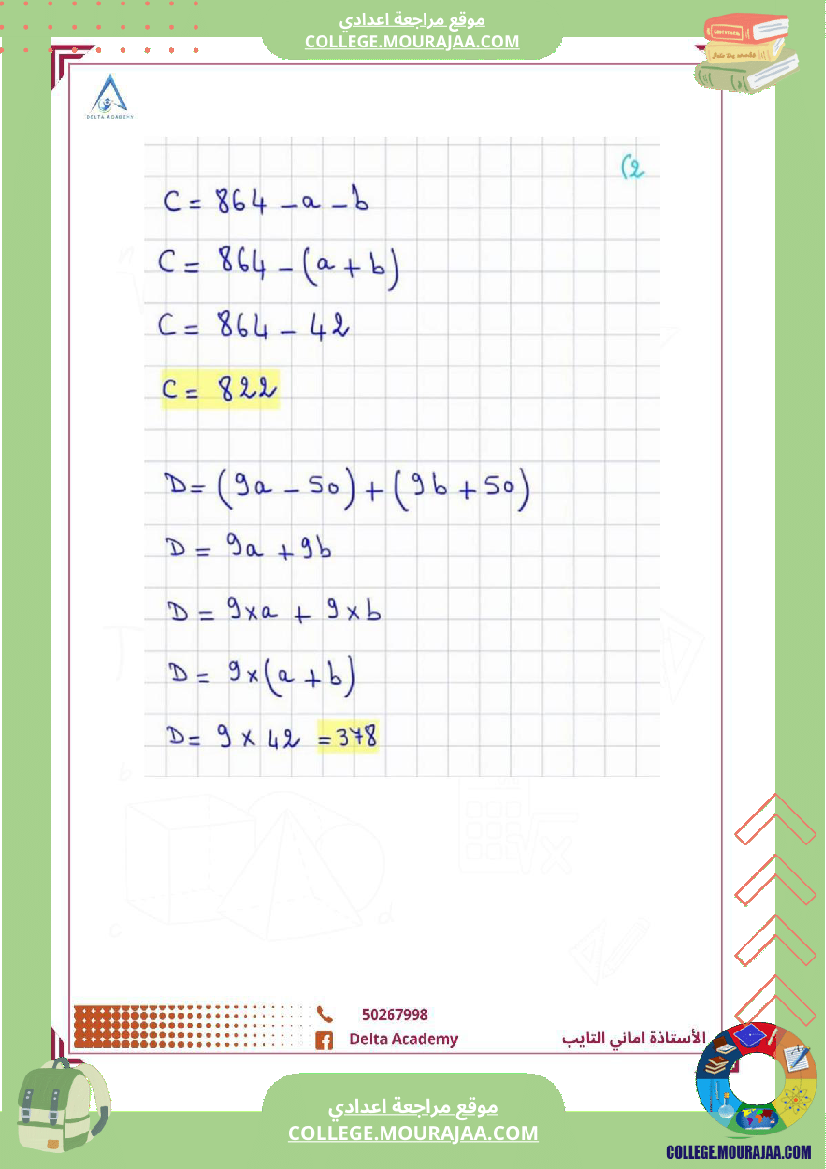 موقع مراجعة اعدادي
COLLEGE.MOURAJAA.COM
DELTA ACADEMY
(2
C = 864 - a - b
C = 864 - (a + b)
C = 864 - 42
C = 822
D = (9a - 50) + (9b + 50)
D = 9a + 9b
D = 9×a + 9×b
D = 9×(a + b)
D = 9 × 42 = 378
50267998
Delta Academy
الأستاذة اماني التايب
موقع مراجعة اعدادي
COLLEGE.MOURAJAA.COM
COLLEGE.MOURAJAA.COM